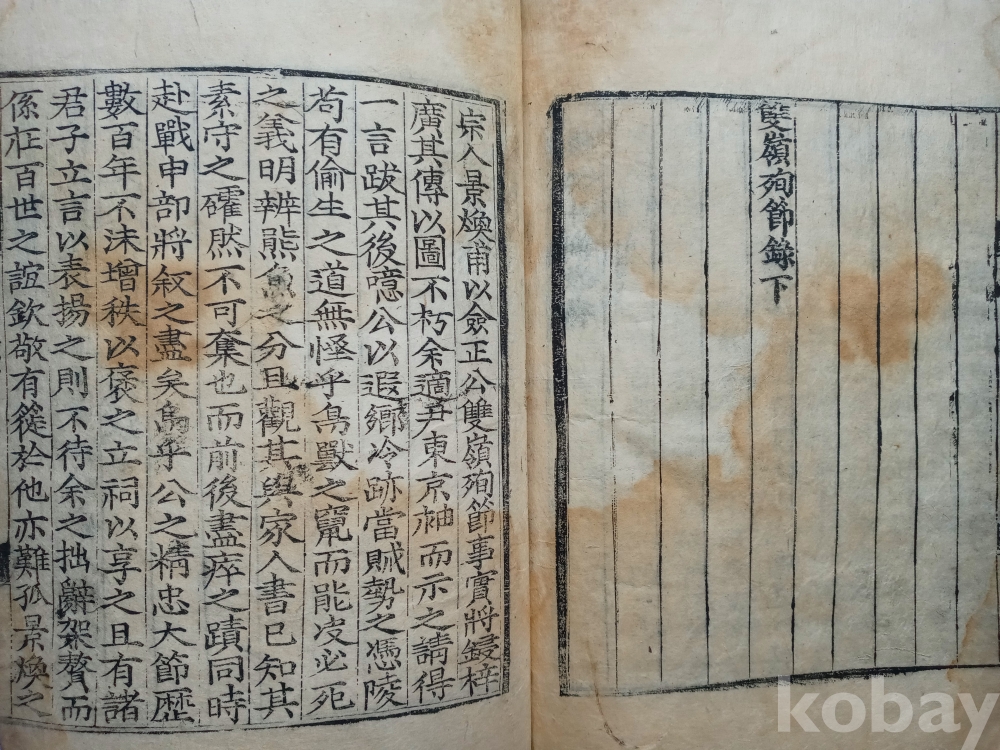 雙嶺殉節錄下
宗人景煥甫以僉正公雙嶺殉節事實將鋟梓
廣其傳以圖不朽余適尹東京袖而示之請得
一言跋其後噫公以遐鄉冷跡當賊勢之憑陵
苟有偷生之道無怪乎鳥獸之竄而能皮必死
之義明辨熊魚之分且觀其與家人書已知其
素守之確然不可奪也而前後盡瘁之蹟同時
赴戰申部將叙之盡矣烏乎公之精忠大節歷
數百年不沬增秩以褒之立祠以享之且有諸
君子立言以表揚之則不待余之拙辭架贅而
係在百世之誼欽敬有從於他亦難孤景煥之
kobay